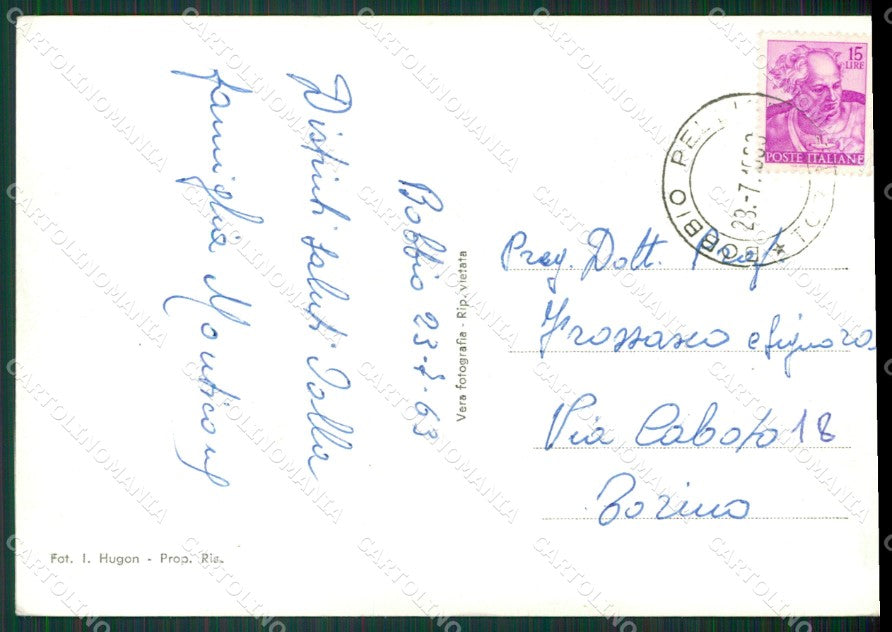 Bobbio 23-7-63
Distinti saluti dalla
famiglia
Vera fotografia - Rip. vietata
Fot. I. Hugon - Prop. Ris.
15
LIRE
POSTE ITALIANE
BOBBIO PELLI
23.-7.
Dott. Prof.
Frossasco e signora
Via Caboto 18
Torino
CARTOLINOMANIA